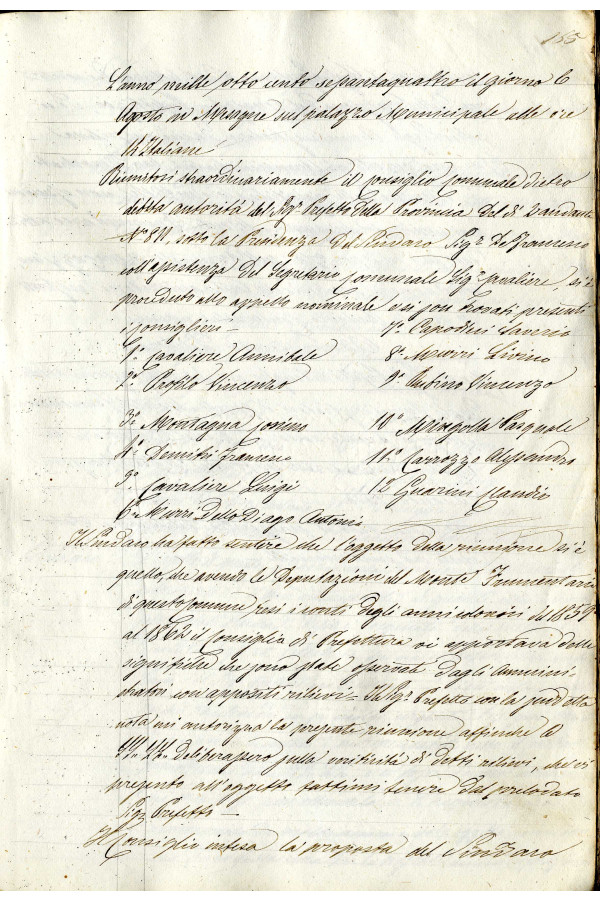 185
L'anno mille otto cento sepantaquattro il giorno 6
Agosto in Mesagne sul palazzo Municipale alle ore
14 Italiane
Riunitosi straordinariamente il Consiglio Comunale dietro
debita autorità del Sigr Prefetto della Provincia del dì 2 andante
N° 811, sotto la Presidenza Del Sindaco Sigr De Franceno
coll'assistenza Del Segretario Comunale Sigr Cavaliere, si è
proceduto allo appello nominale e si son trovati presenti
i consiglieri —
1° Cavaliere Annibale
2° Profilo Vincenzo
3° Montagna
4° Demitri
5° Cavaliere Luigi
6° Murri Dello Diago Antonio
7° Capodieci Saverio
8° Murri Livino
9° Rubino Vincenzo
10° Mingolla Pasquale
11° Carrozzo Alessandro
12 Guarini Claudio
Il Sindaco ha fatto sentire che l'oggetto della riunione si è
quello, che avendo le Deputazioni del Monte Frumentario
di questo Comune resi i conti degli anni colonici dal 1859
al 1862 il Consiglio di Prefettura vi apportava delle
significate che sono state osservate dagli Ammini-
stratori con appositi rilievi = Il Sigr Prefetto con la prodetta
nota mi autorizza la presente riunione affinche le
SS. LL. deliberassero sulla veridicità di detti rilievi, che vi
presento all'oggetto fattimi tenere dal prelodato
Sigr Prefetto —
Il Consiglio intesa la proposta del Sindaco